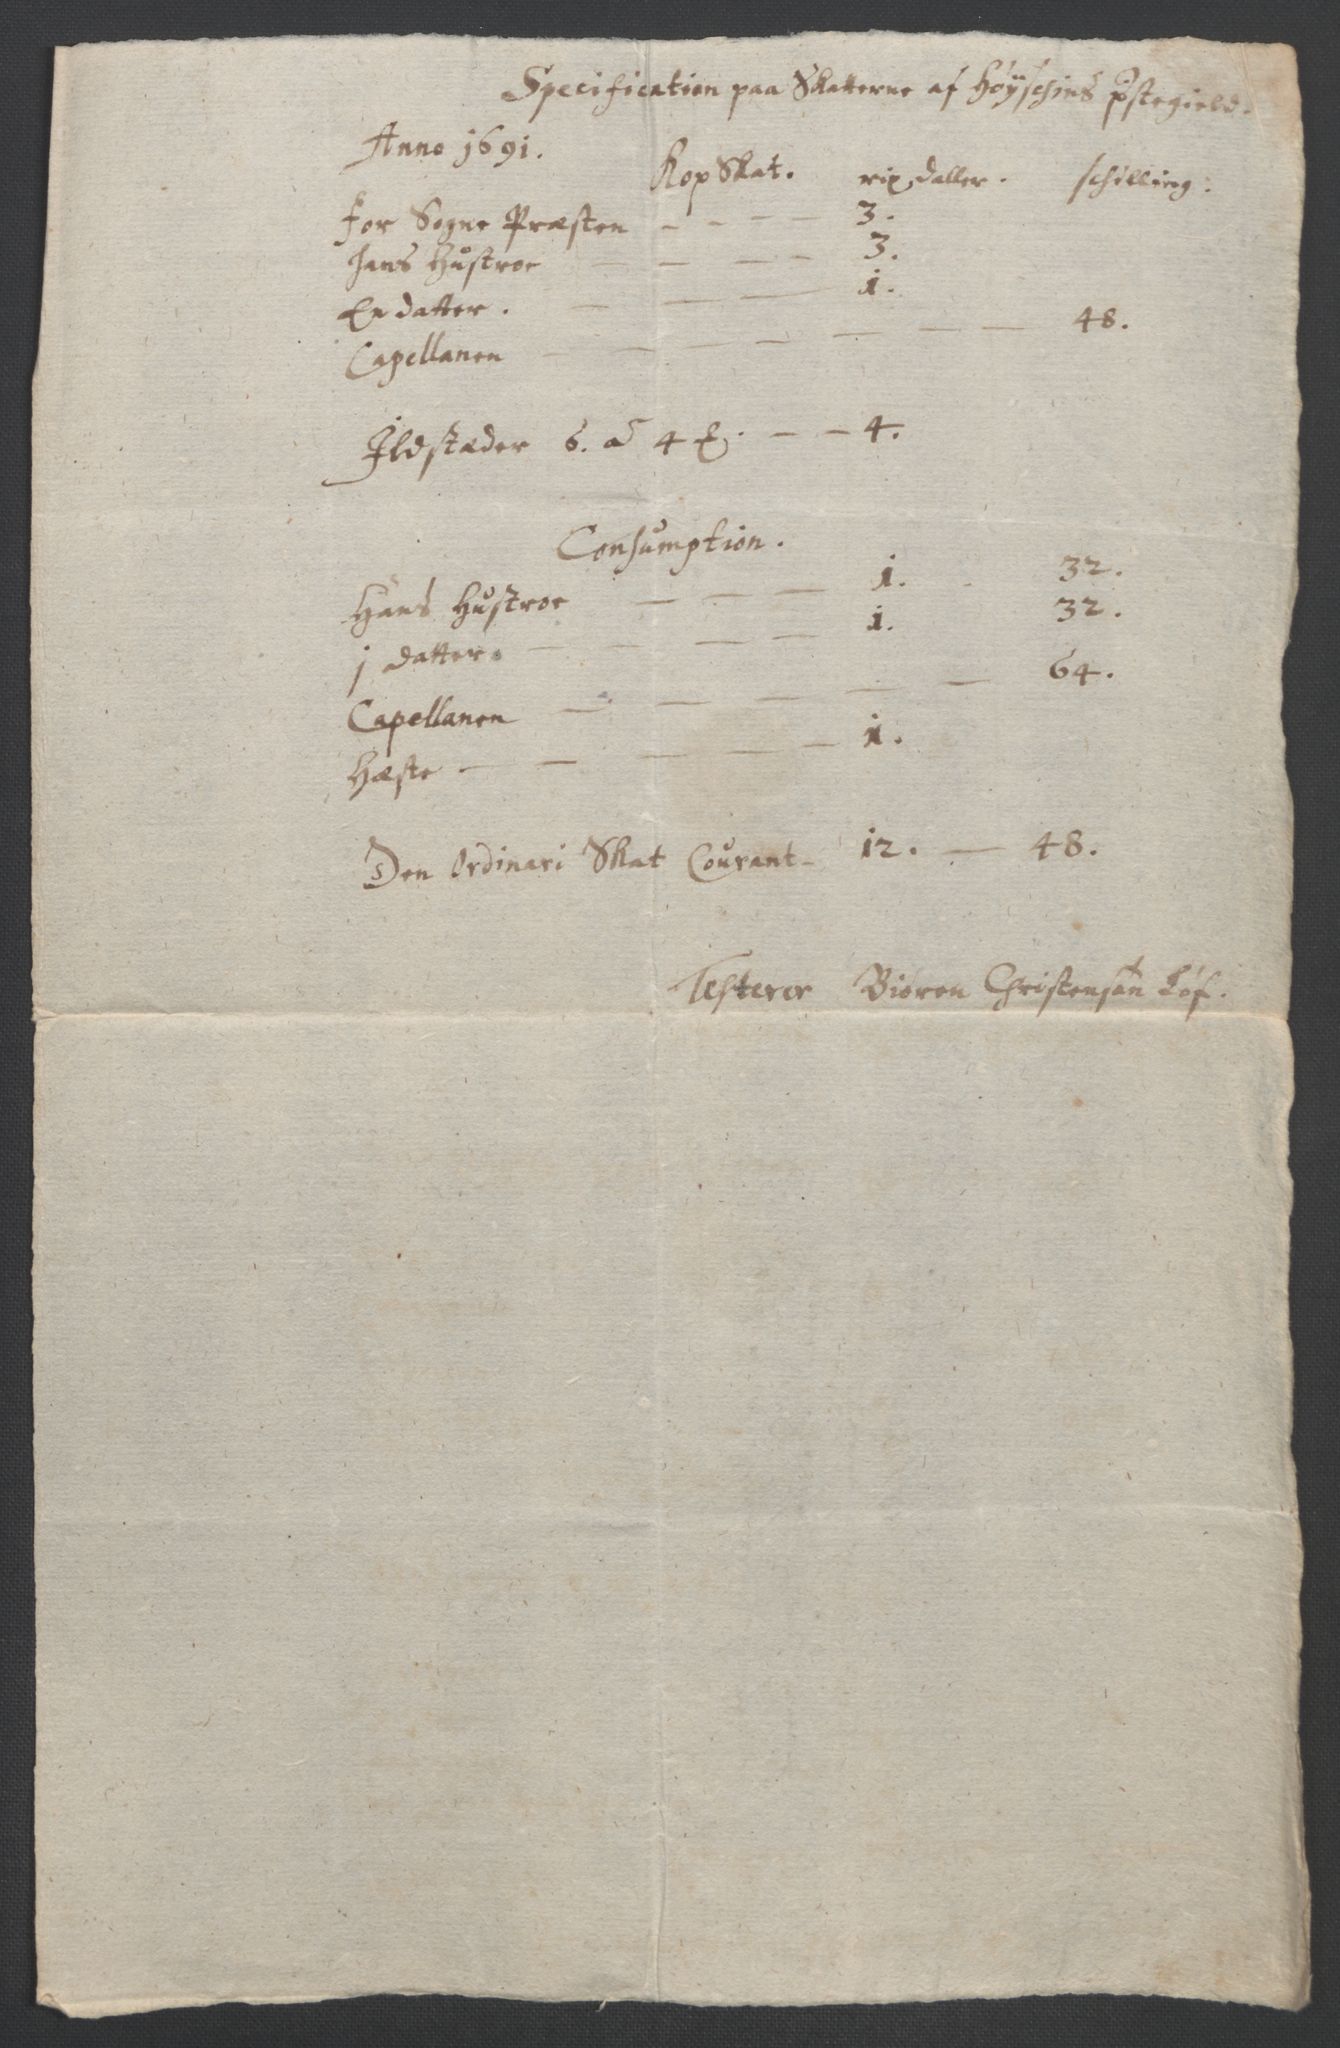 Specification paa Skatterne af Høyschins Pstegield.
Anno 1691.
KopSkat. rix daller. schilling:
for Sogne Præsten - - - - 3.
hans Hustroe - - - - 3.
En datter. - - - 1.
Capellanen - - - - - - - 48.
Ildstæder 6. a 4 - - 4.
Consumption.
Hans Hustroe - - - - 1. 32.
1 datter. - - - - 1. 32.
Capellanen - - - - - - 64.
Hæste - - - - - 1.
Den Ordinari Skat Courant - 12. - 48.
Testerer Biøren Christensøn Løf.